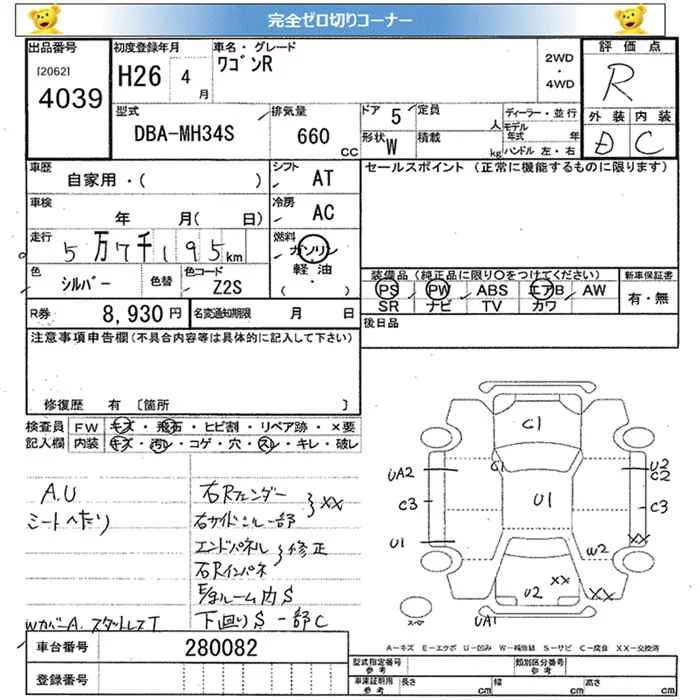 完全ゼロ切りコーナー
出品番号
[2062]
4039
初度登録年月
H26 4月
車名・グレード
ワゴンR
2WD
・
4WD
評価点
R
型式
DBA-MH34S
排気量
660 CC
ドア 5
定員 人
形状 W
積載 kg
ディーラー・並行
モデル年式 年
ハンドル 左・右
外装 内装
D C
車歴
自家用・( )
シフト
AT
セールスポイント (正常に機能するものに限ります)
車検
年 月( 日)
冷房
AC
走行
5万7千195km
燃料
ガソリン
軽油
( ・ )
色
シルバー
色替
色コード
Z2S
装備品 (純正品に限り○をつけてください)
新車保証書
PS PW ABS エアB AW
SR ナビ TV カワ
有・無
R券
8,930円
名変通知期限 月 日
後日品
注意事項申告欄(不具合内容等は具体的に記入して下さい)
修復歴 有 〔箇所 〕
検査員記入欄
FW キズ・飛石・ヒビ割・リペア跡・×要
内装 キズ・汚レ・コゲ・穴・スレ・キレ・破レ
A.U
シートへたり
右Rフェンダー
右サイドシル一部
XX
エンドパネル
右Rインパネ
修正
E/gルーム内S
下廻りS 一部C
WカバーA. スタットレスT
C1
G1
UA2
C3
U1
U1
U2
C2
C3
XX
W2
XX
U2
XX
UA1
スペア
A－キズ E－エクボ U－凹み W－補修跡 S－サビ C－腐食 XX－交換済
車台番号
280082
登録番号
型式指定番号 参考
類別区分番号 参考
車庫証明用 参考
長さ cm
幅 cm
高さ cm